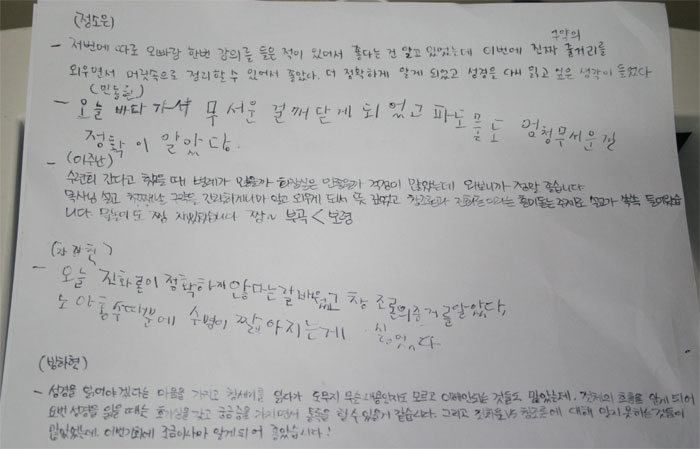 (정소은)
구약의
- 저번에 따로 오빠랑 한번 강의를 들은 적이 있어서 좋다는 건 알고 있었는데 이번에 진짜 줄거리를
외우면서 머릿속으로 정리할 수 있어서 좋았다. 더 정확하게 알게 되었고 성경을 다시 읽고 싶은 생각이 들었다
- 오늘 바다 가서 무서운 걸 깨닫게 되었고 파도 물도 엄청 무서운걸
정확이 알았다.
- (이주난)
수련회 간다고 했을 때 벌레가 있을까 화장실은 있을까 걱정이 많았는데 와보니까 정말 좋습니다
목사님 설교 첫째날 구약을 알고 외우게 되서 창조론과 진화론 이라는 흥미돋는 주제로 설교가 쏙쏙 들어왔습
니다 물놀이도 짱 짱~ 부곡 < 보령
- 오늘 진화론이 정확하지 않다는걸 배웠고 창조론의 증거를 알았다,
노아홍수때문에 수명이 짧아지는게 있었다
(방하현)
- 성경을 읽어야겠다는 마음을 가지고 창세기를 읽다가 도무지 무슨 내용인지도 모르고 이해안되는 것들도 많았는데, 전체의 흐름을 알게 되어
요번 성경을 읽을 때는 흥미를 갖고 궁금증을 가지면서 할 수 있을거 같습니다. 그리고 진화론 vs 창조론에 대해 알지 못하는 것들이
많았었는데 이번기회에 조금이나마 알게 되어 좋았습니다!